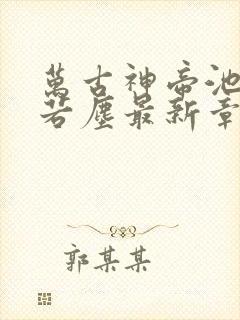 萬古神帝池
若塵最新章
郭某某